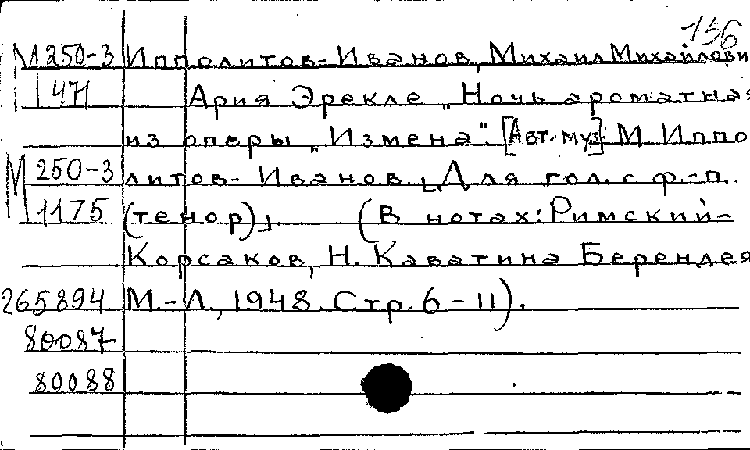 136
М 250-3 Ипполитов-Иванов, Михаил Михайлови
471 Ария Эрекле „Ночь ароматная
из оперы „Измена". [Авт. муз.] М. Иппо
М 250-3 литов-Иванов. [Для гол. с ф.-п.
1175 (тенор)]. (В нотах: Римский-
Корсаков, Н. Каватина Берендея
265894 М.-Л., 1948. Стр. 6-11).
80087
80088